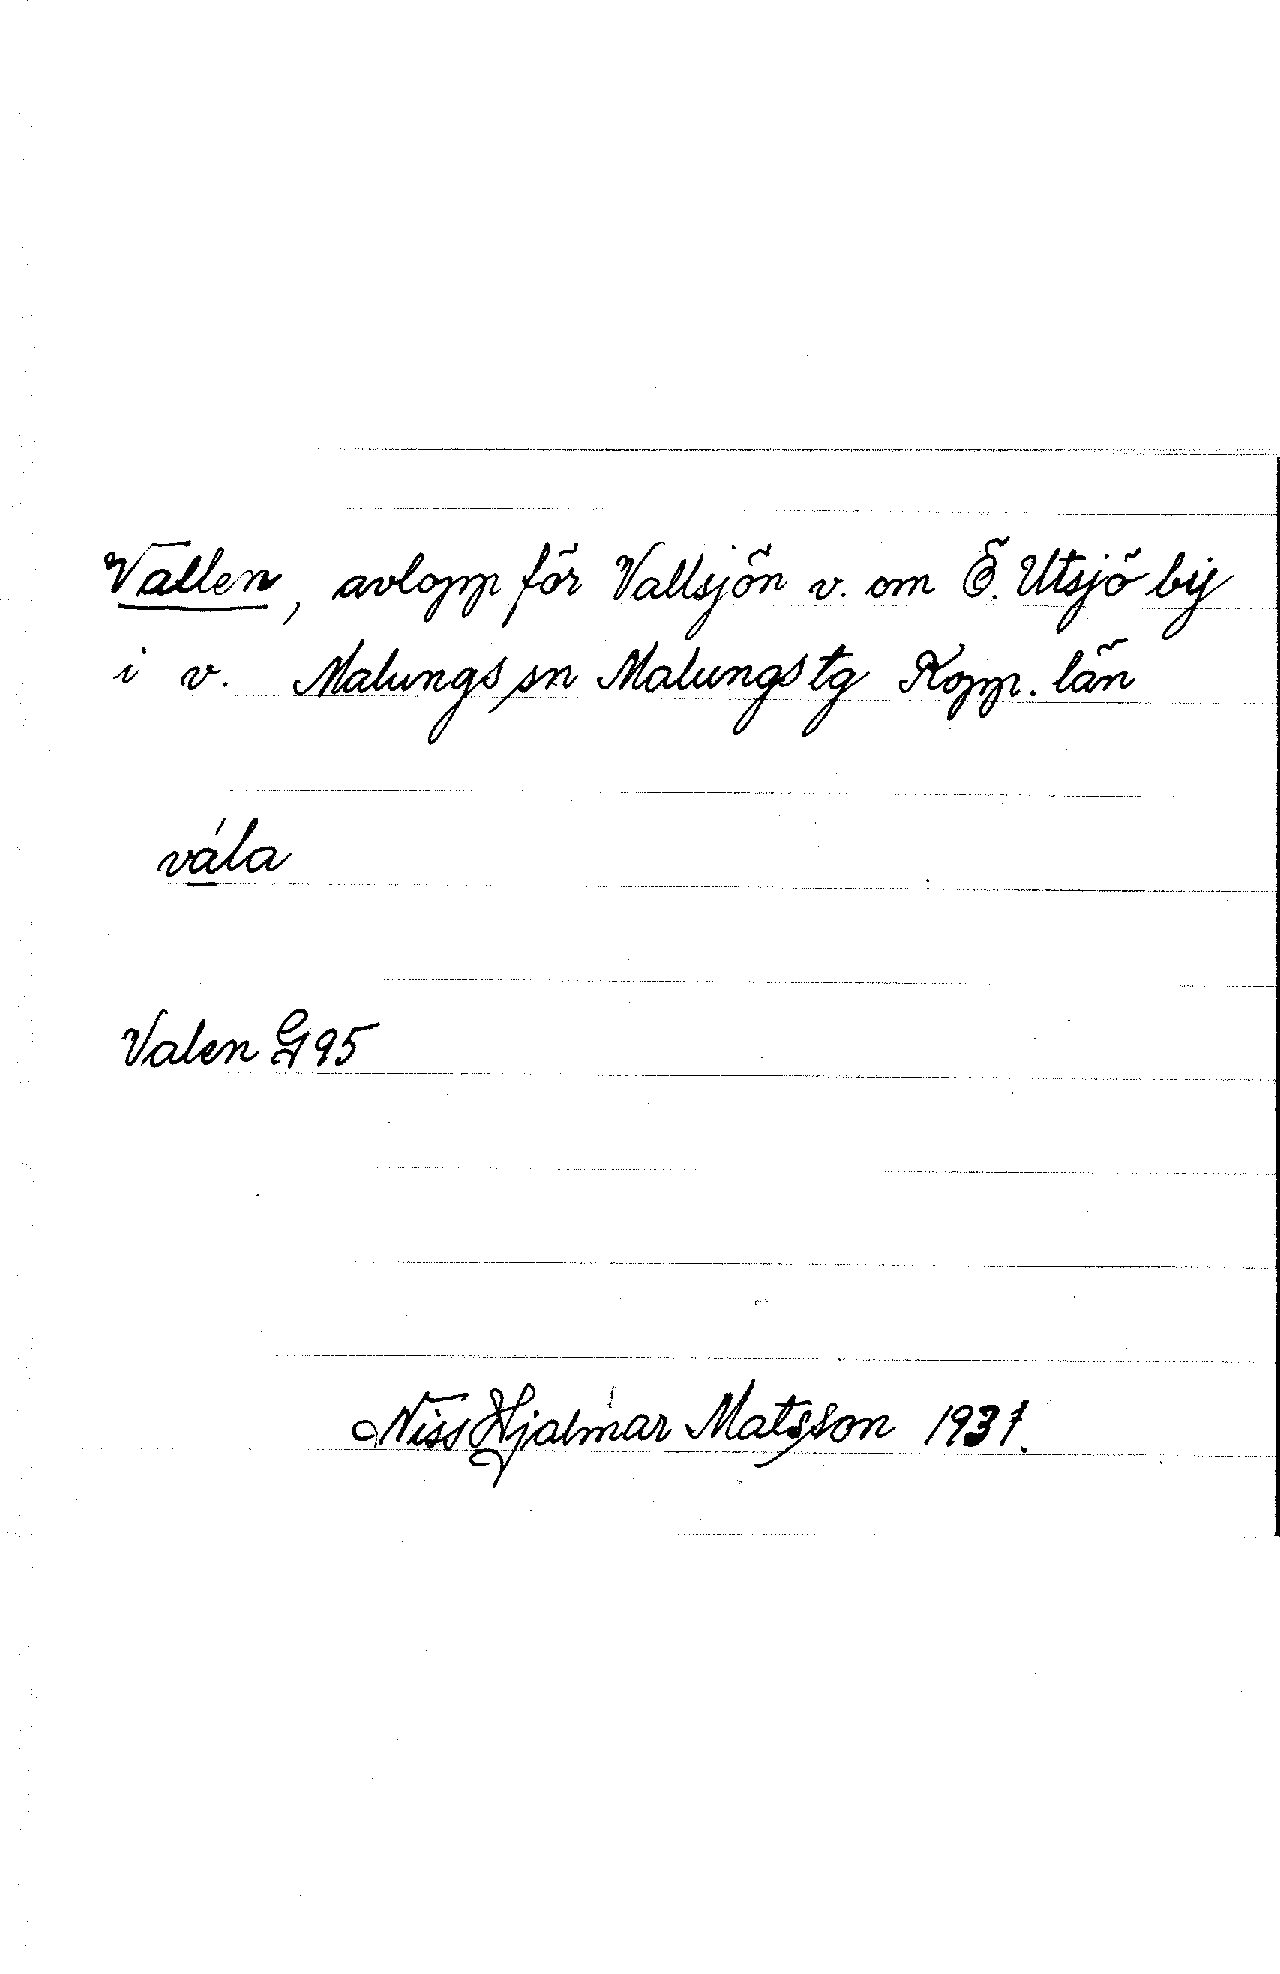 Vallen, avlopp för Vallsjön v. om Ö. Utsjö by
i v. Malungs sn Malungs tg Kopp. län
vála
Valen G95
Niss Hjalmar Matsson 1937.